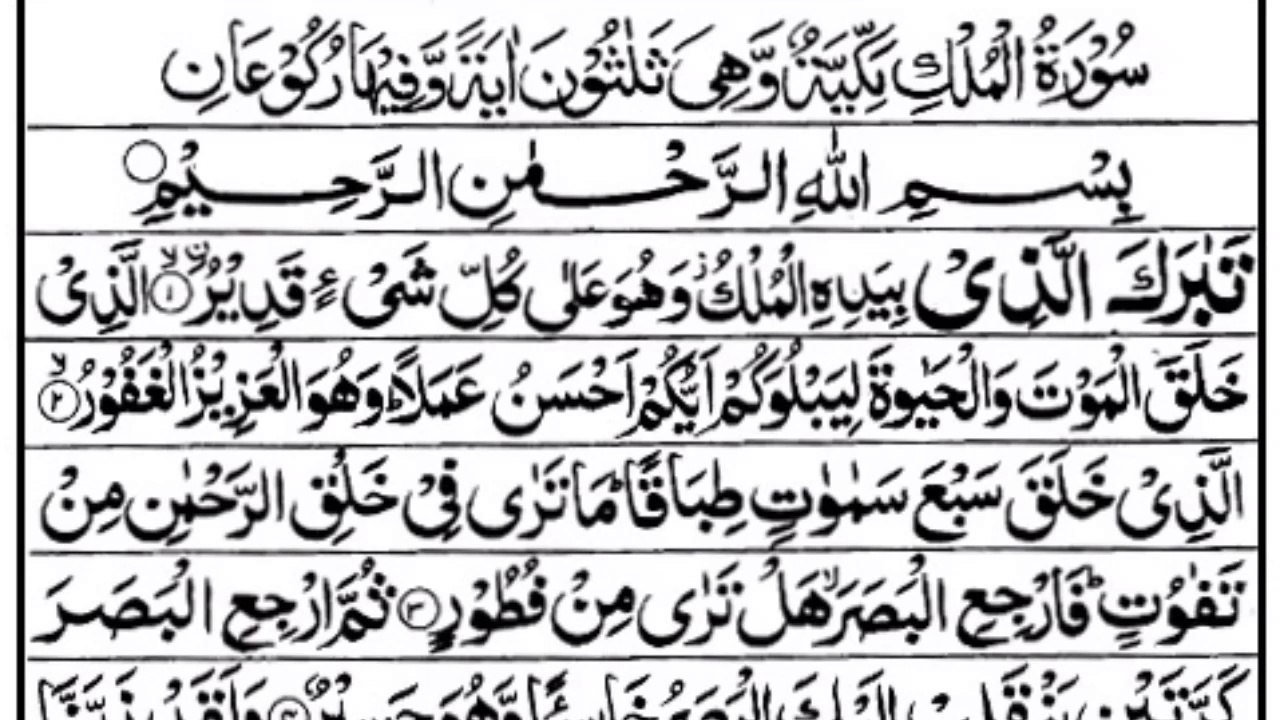 سُوْرَةُ الْمُلْكِ مَكِّيَّةٌ وَّهِىَ ثَلٰثُوْنَ اٰيَةً وَّفِيْهَا رُكُوْعَانِ
بِسْمِ اللّٰهِ الرَّحْمٰنِ الرَّحِيْمِ
تَبٰرَكَ الَّذِىْ بِيَدِهِ الْمُلْكُ ز وَهُوَ عَلٰى كُلِّ شَىْءٍ قَدِيْرُ ۙ﴿۱﴾ الَّذِىْ
خَلَقَ الْمَوْتَ وَالْحَيٰوةَ لِيَبْلُوَكُمْ اَيُّكُمْ اَحْسَنُ عَمَلًا ؕ وَهُوَ الْعَزِيْزُ الْغَفُوْرُ ۙ﴿۲﴾
الَّذِىْ خَلَقَ سَبْعَ سَمٰوٰتٍ طِبَاقًا ؕ مَا تَرٰى فِىْ خَلْقِ الرَّحْمٰنِ مِنْ
تَفٰوُتٍ ؕ فَارْجِعِ الْبَصَرَ ۙ هَلْ تَرٰى مِنْ فُطُوْرٍ ﴿۳﴾ ثُمَّ ارْجِعِ الْبَصَرَ
كَرَّتَيْنِ يَنْقَلِبْ اِلَيْكَ الْبَصَرُ خَاسِئًا وَّهُوَ حَسِيْرٌ ﴿۴﴾ وَلَقَدْ زَيَّنَّا